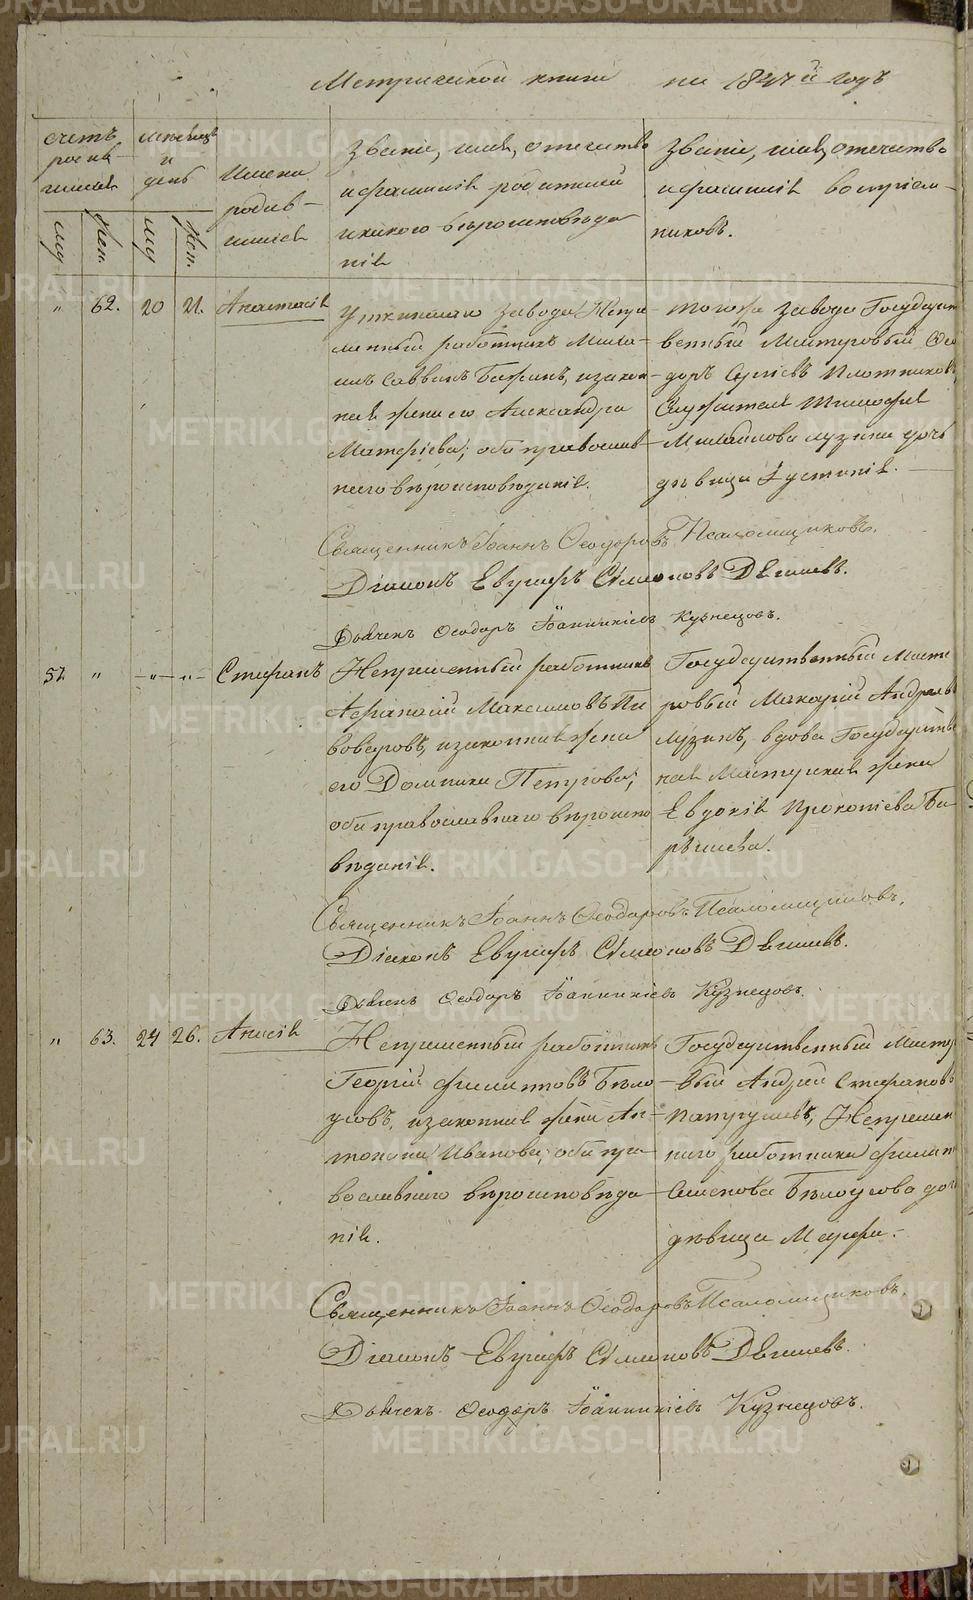 Метрической книги на 1847й годъ
счетъ родившихся
мѣсяцъ и день
Имена родившихся
Званіе, имя, отечество и фамилія родителей и какого вѣроисповѣданія
Званіе, имя, отечество и фамилія воспріемниковъ.
муж. жен. муж. жен.
" 62. 20 21. Анастасія
Уткинскаго завода Непремѣнный работникъ
инъ Саввинъ Бажинъ, и законная жена его Александра
Матфіева; оба православнаго вѣроисповѣданія.
тогожъ завода Государственный Мастеровый Ѳеодоръ Сергіевъ Плотниковъ,
Служителя Тимофея
Михайлова Лузина дочь
дѣвица Іустинія.
Священникъ Іоаннъ Ѳеодоровъ Псаломщиковъ.
Діаконъ Евграфъ Сѵмеоновъ Дягилевъ.
Дьячекъ Ѳеодоръ Іоанникіевъ Кузнецовъ.
57. " -"- -"- Стефанъ
Непремѣнный работникъ
Афанасій Максимовъ Пивоваровъ, и законная жена
его Домника Петрова;
оба православнаго вѣроисповѣданія.
Государственный Мастеровый Макарій Андреевъ
Лузинъ, вдова Государственная Мастерская жена
Евдокія Прокопіева
Священникъ Іоаннъ Ѳеодоровъ Псаломщиковъ.
Діаконъ Евграфъ Сѵмеоновъ Дягилевъ.
Дьячекъ Ѳеодоръ Іоанникіевъ Кузнецовъ.
" 63. 24 26. Анисія
Непремѣнный работникъ
Георгій Филипповъ Бѣлоусовъ, и законная жена Антонина Иванова; оба православнаго вѣроисповѣданія.
Государственный Мастеровый Андрей Стефановъ
Непремѣннаго работника Филиппа
Семенова Бѣлоусова дочь
дѣвица Марфа.
Священникъ Іоаннъ Ѳеодоровъ Псаломщиковъ.
Діаконъ Евграфъ Сѵмеоновъ Дягилевъ.
Дьячекъ Ѳеодоръ Іоанникіевъ Кузнецовъ.
METRIKI.GASO-URAL.RU